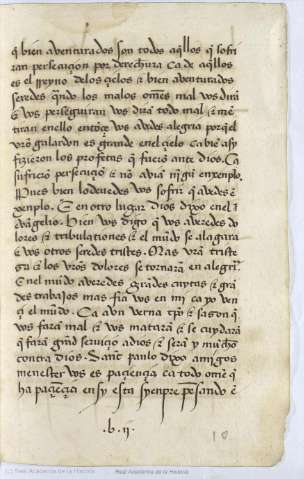 q̄ bien aventurados son todos aq̄llos q̄ sofri
ran persecucion por derechura Ca de aq̄llos
es el Reyno de los çielos ⁊ bien aventurados
seredes qn̄do los malos om̄es mal vos dirā
⁊ vos perseguiran vos dirā todo mal ⁊ mē
tiran en ello entōçe vos avedes alegria por q̄ el
vr̄o galardon es grande en el çielo ca bie assy
fizieron los profetas q̄ fuerō ante dios. Ca
sufriero persecuçiō ⁊ no aviā nigū enxenplo
Pues bien lo devedes vos sofrir q̄ avedes ē
xenplo. ⁊ en otro lugar dios dixo en el
evāgelio. Bien vos digo q̄ vos averedes do
lores ⁊ tribulationes ⁊ el mūdo se alegara
⁊ vos otros seredes tristes. Mas vr̄a triste
za ⁊ los vr̄os dolores se tornarā en alegria
En el mūdo averedes grādes cuytas ⁊ grā
des trabajos mas fia vos en mi ca yo ven
çi el mūdo. Ca avn verna tp̄o ⁊ sason q̄
vos farā mal ⁊ vos matarā ⁊ se cuydarā
q̄ farā grād serviçio a dios ⁊ serā y mucho
contra dios. Sant paulo dixo amigos
menester vos es paçiençia ca todo ome q̄
ha paçiēçia en sy esta syenpre pēsando ē
.b.ii.
10
(c) Real Academia de la Historia
Real Academia de la Historia